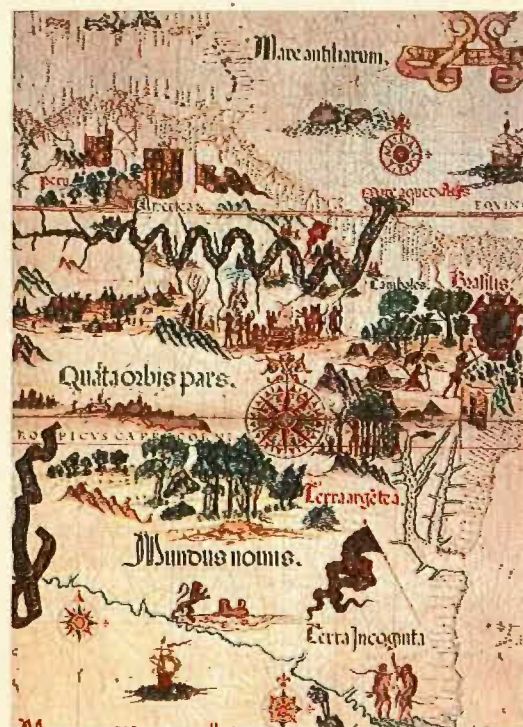 Mare antiliarum.
peru
Mare aque dulcis
Canibales.
Brasilis.
Quarta orbis pars.
Terra argētea.
Mundus nouus.
Terra Incognita